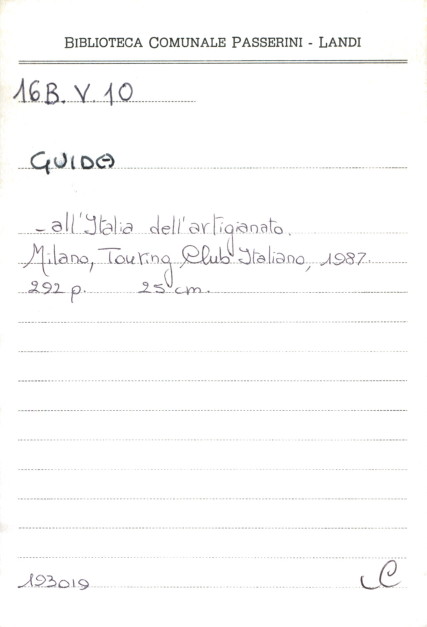 BIBLIOTECA COMUNALE PASSERINI - LANDI
16B. V. 10
GUIDA
- all'Italia dell'artigianato.
Milano, Touring Club Italiano, 1987.
292 p. 25 cm.
193019 C